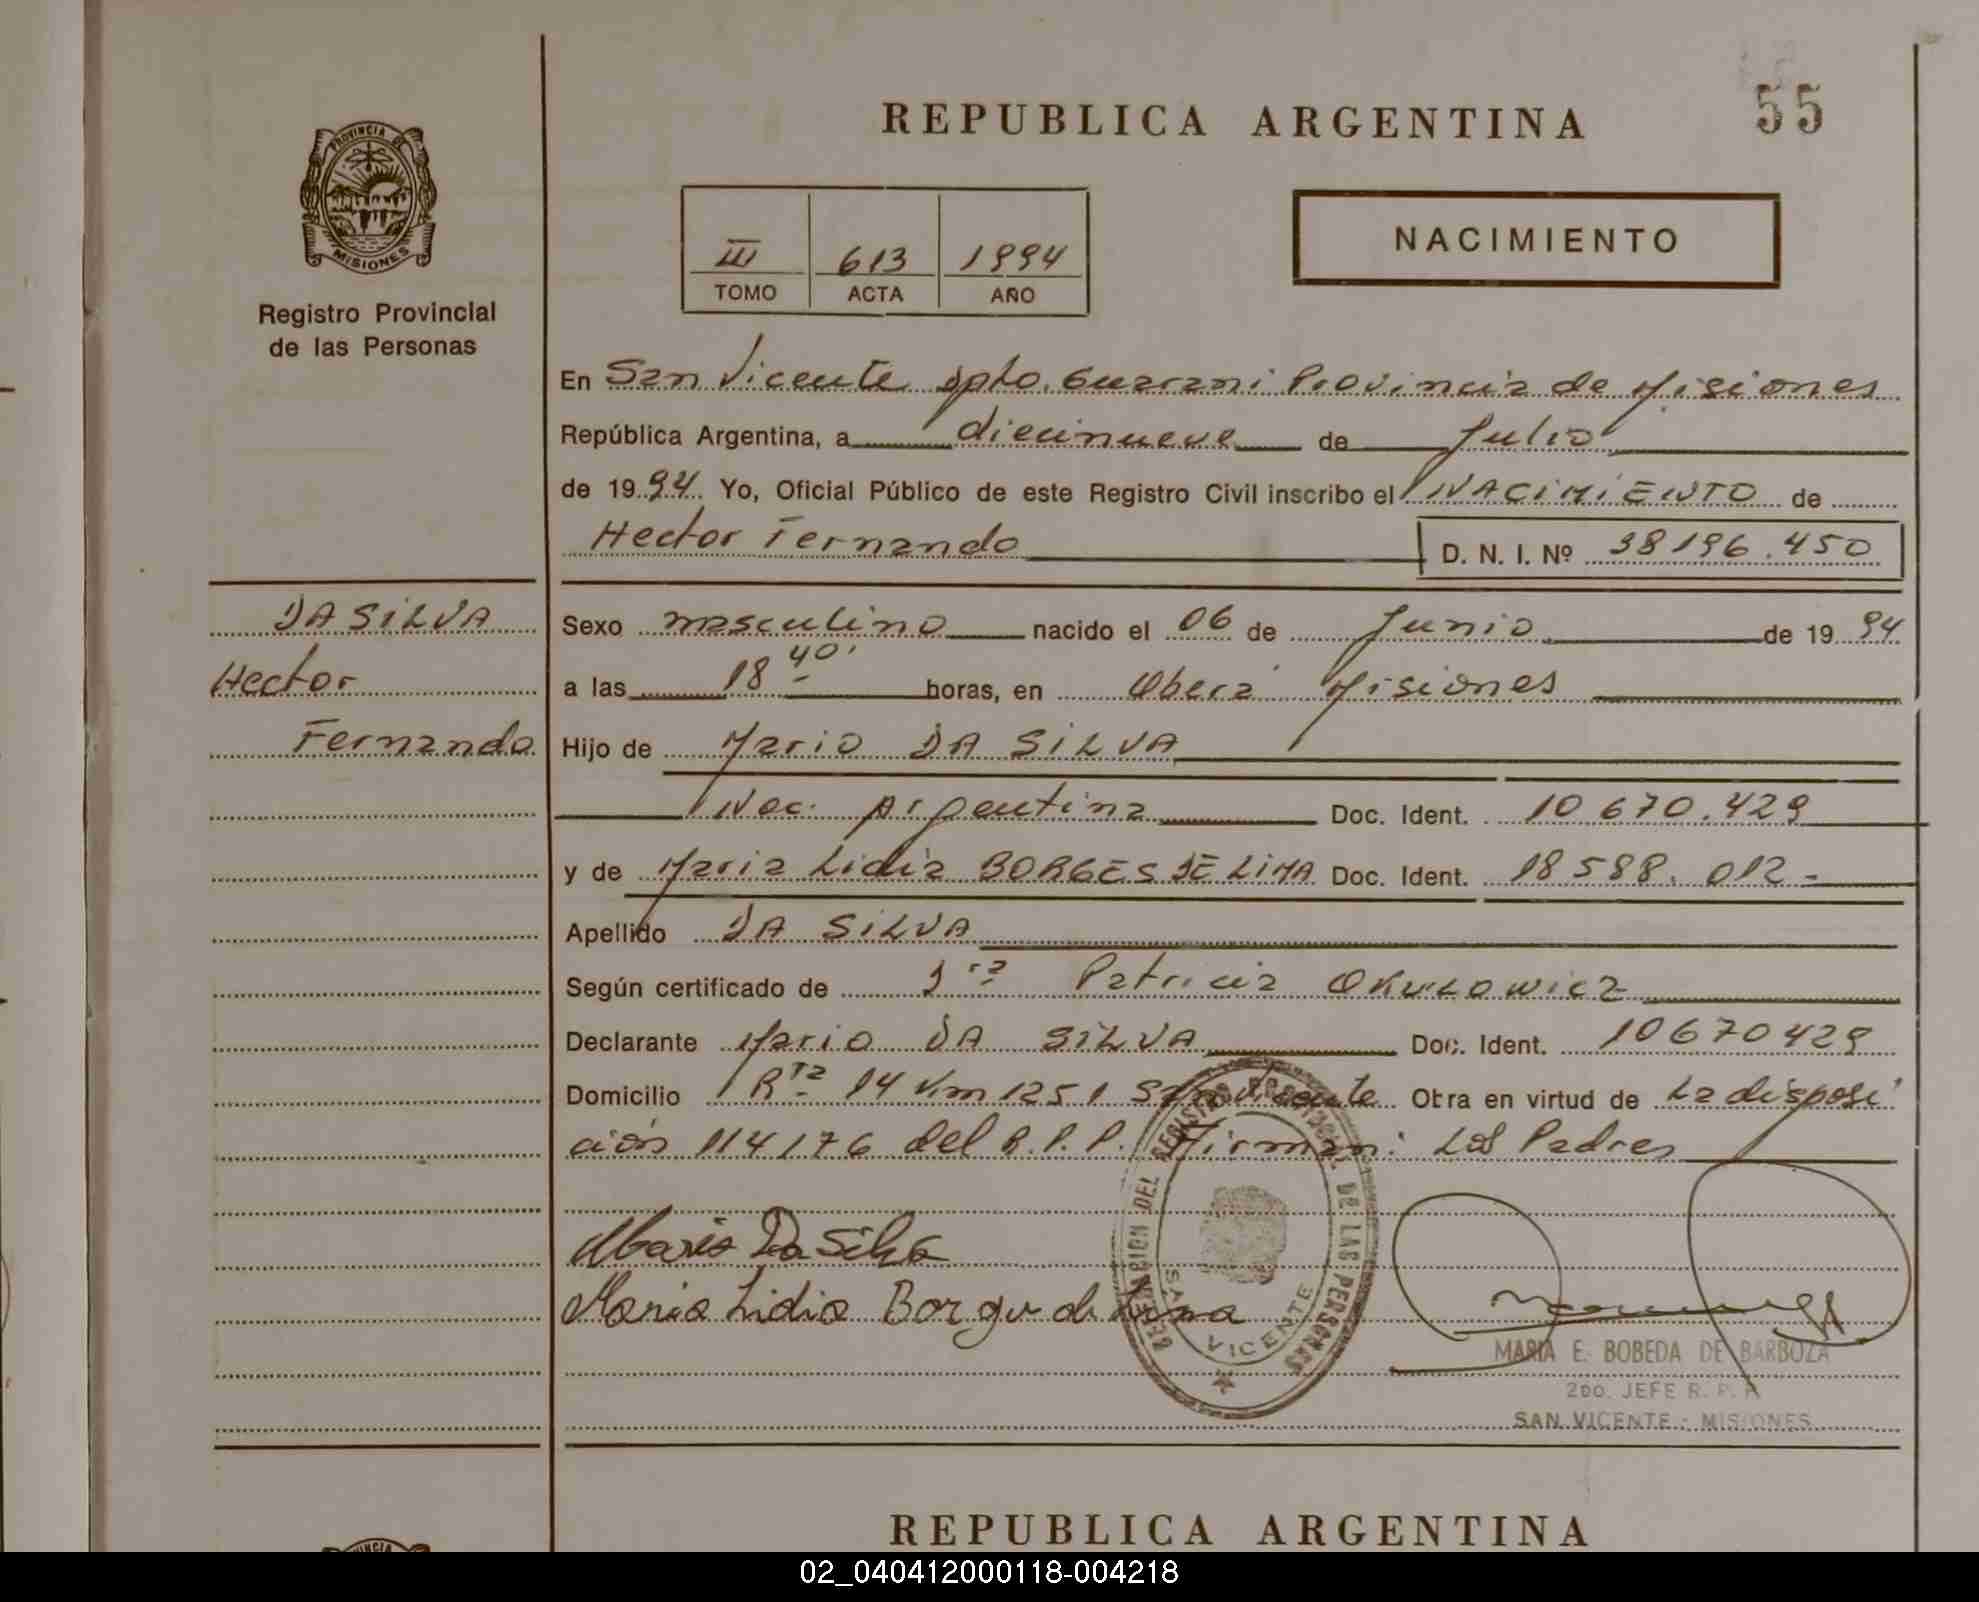 REPUBLICA ARGENTINA
55
PROVINCIA DE
MISIONES
Registro Provincial
de las Personas
III 613 1994
TOMO ACTA AÑO
NACIMIENTO
En San Vicente Dpto. Guarani Provincia de Misiones
República Argentina, a diecinueve de Julio
de 1994. Yo, Oficial Público de este Registro Civil inscribo el NACIMIENTO de
Hector Fernando
D. N. I. Nº 38196.450
DA SILVA
Hector
Fernando
Sexo masculino nacido el 06 de Junio de 1994
a las 18 40' horas, en Oberá Misiones
Hijo de Mario DA SILVA
Nac. Argentina Doc. Ident. 10670.429
y de Maria Lidia BORGES DE LIMA Doc. Ident. 18588.012-
Apellido DA SILVA
Según certificado de Dra Patricia OKULOWICZ
Declarante Mario DA SILVA Doc. Ident. 10670429
Domicilio Rta 14 Km 1251 San Vicente Obra en virtud de La disposi
ción 114/76 del R.P.P. Firman: Los Padres
Mario Da Silva
Maria Lidia Borge de Lima
DELEGACION DEL REGISTRO PROVINCIAL DE LAS PERSONAS
SAN VICENTE
MARIA E. BOBEDA DE BARBOZA
2DO. JEFE R. P. P.
SAN VICENTE - MISIONES
REPUBLICA ARGENTINA
02_040412000118-004218